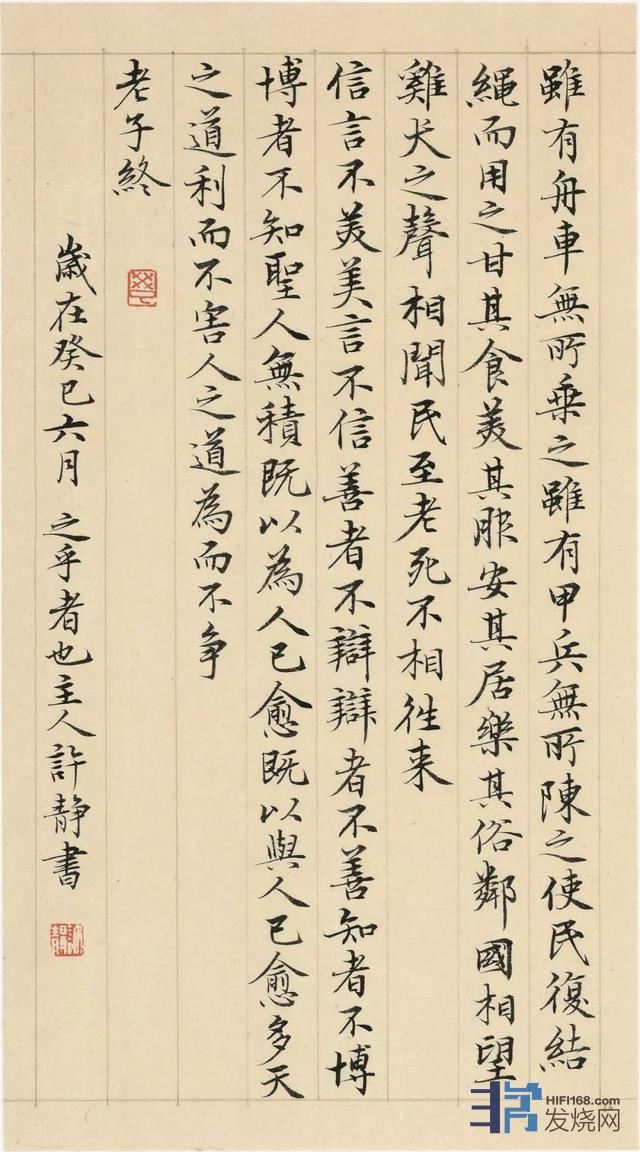 雖有舟車無所乗之雖有甲兵無所陳之使民復結
繩而用之甘其食美其服安其居樂其俗鄰國相望
雞犬之聲相聞民至老死不相往来
信言不美美言不信善者不辯辯者不善知者不博
博者不知聖人無積既以為人已愈既以與人已愈多天
之道利而不害人之道為而不争
老子終
歲在癸巳六月之乎者也主人許静書
HIFI168.com
发烧网